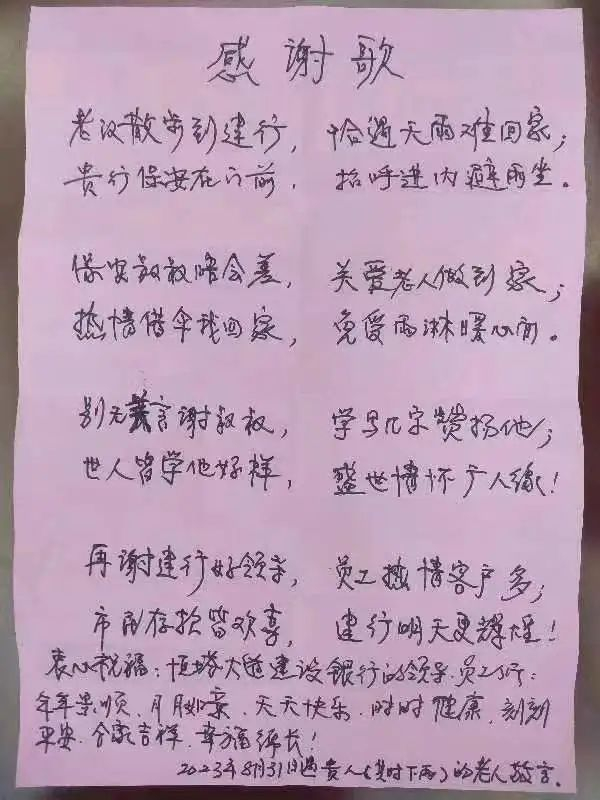 感谢歌
老汉散步到建行， 恰遇天雨难回家；
贵行保安在门前， 招呼进内避雨坐。
保安叔叔陪会差， 关爱老人做到家；
热情借伞我回家， 免受雨淋暖心间。
别无美言谢叔叔， 学写几字赞扬他；
世人皆学他好样， 盛世情怀广人缘！
再谢建行好领导， 员工热情客户多；
市民存款皆欢喜， 建行明天更辉煌！
衷心祝福：恒塔大道建设银行的领导.员工们：
年年景顺、月月如意、天天快乐、时时健康、刻刻
平安、合家吉祥、幸福绵长！
2023年8月31日遇贵人（其时下雨）的老人敬言.